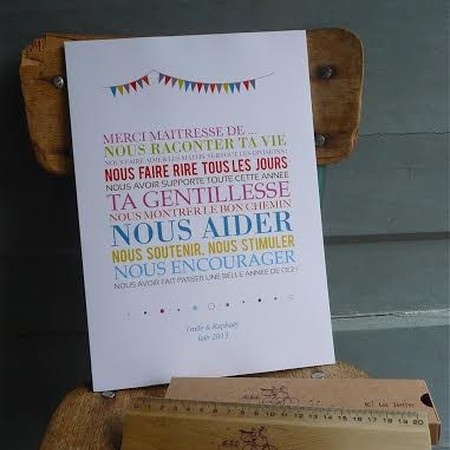 MERCI MAITRESSE DE ...
NOUS RACONTER TA VIE
NOUS FAIRE AIMER LES MATHS SURTOUT LES DIVISIONS!
NOUS FAIRE RIRE TOUS LES JOURS
NOUS AVOIR SUPPORTE TOUTE CETTE ANNEE
TA GENTILLESSE
NOUS MONTRER LE BON CHEMIN
NOUS AIDER
NOUS SOUTENIR, NOUS STIMULER
NOUS ENCOURAGER
NOUS AVOIR FAIT PASSER UNE BELLE ANNEE DE CE2!
Emilie & Raphael
Juin 2013
0 1 2 3 4 5 6 7 8 9 10 11 12 13 14 15 16 17 18 19 20